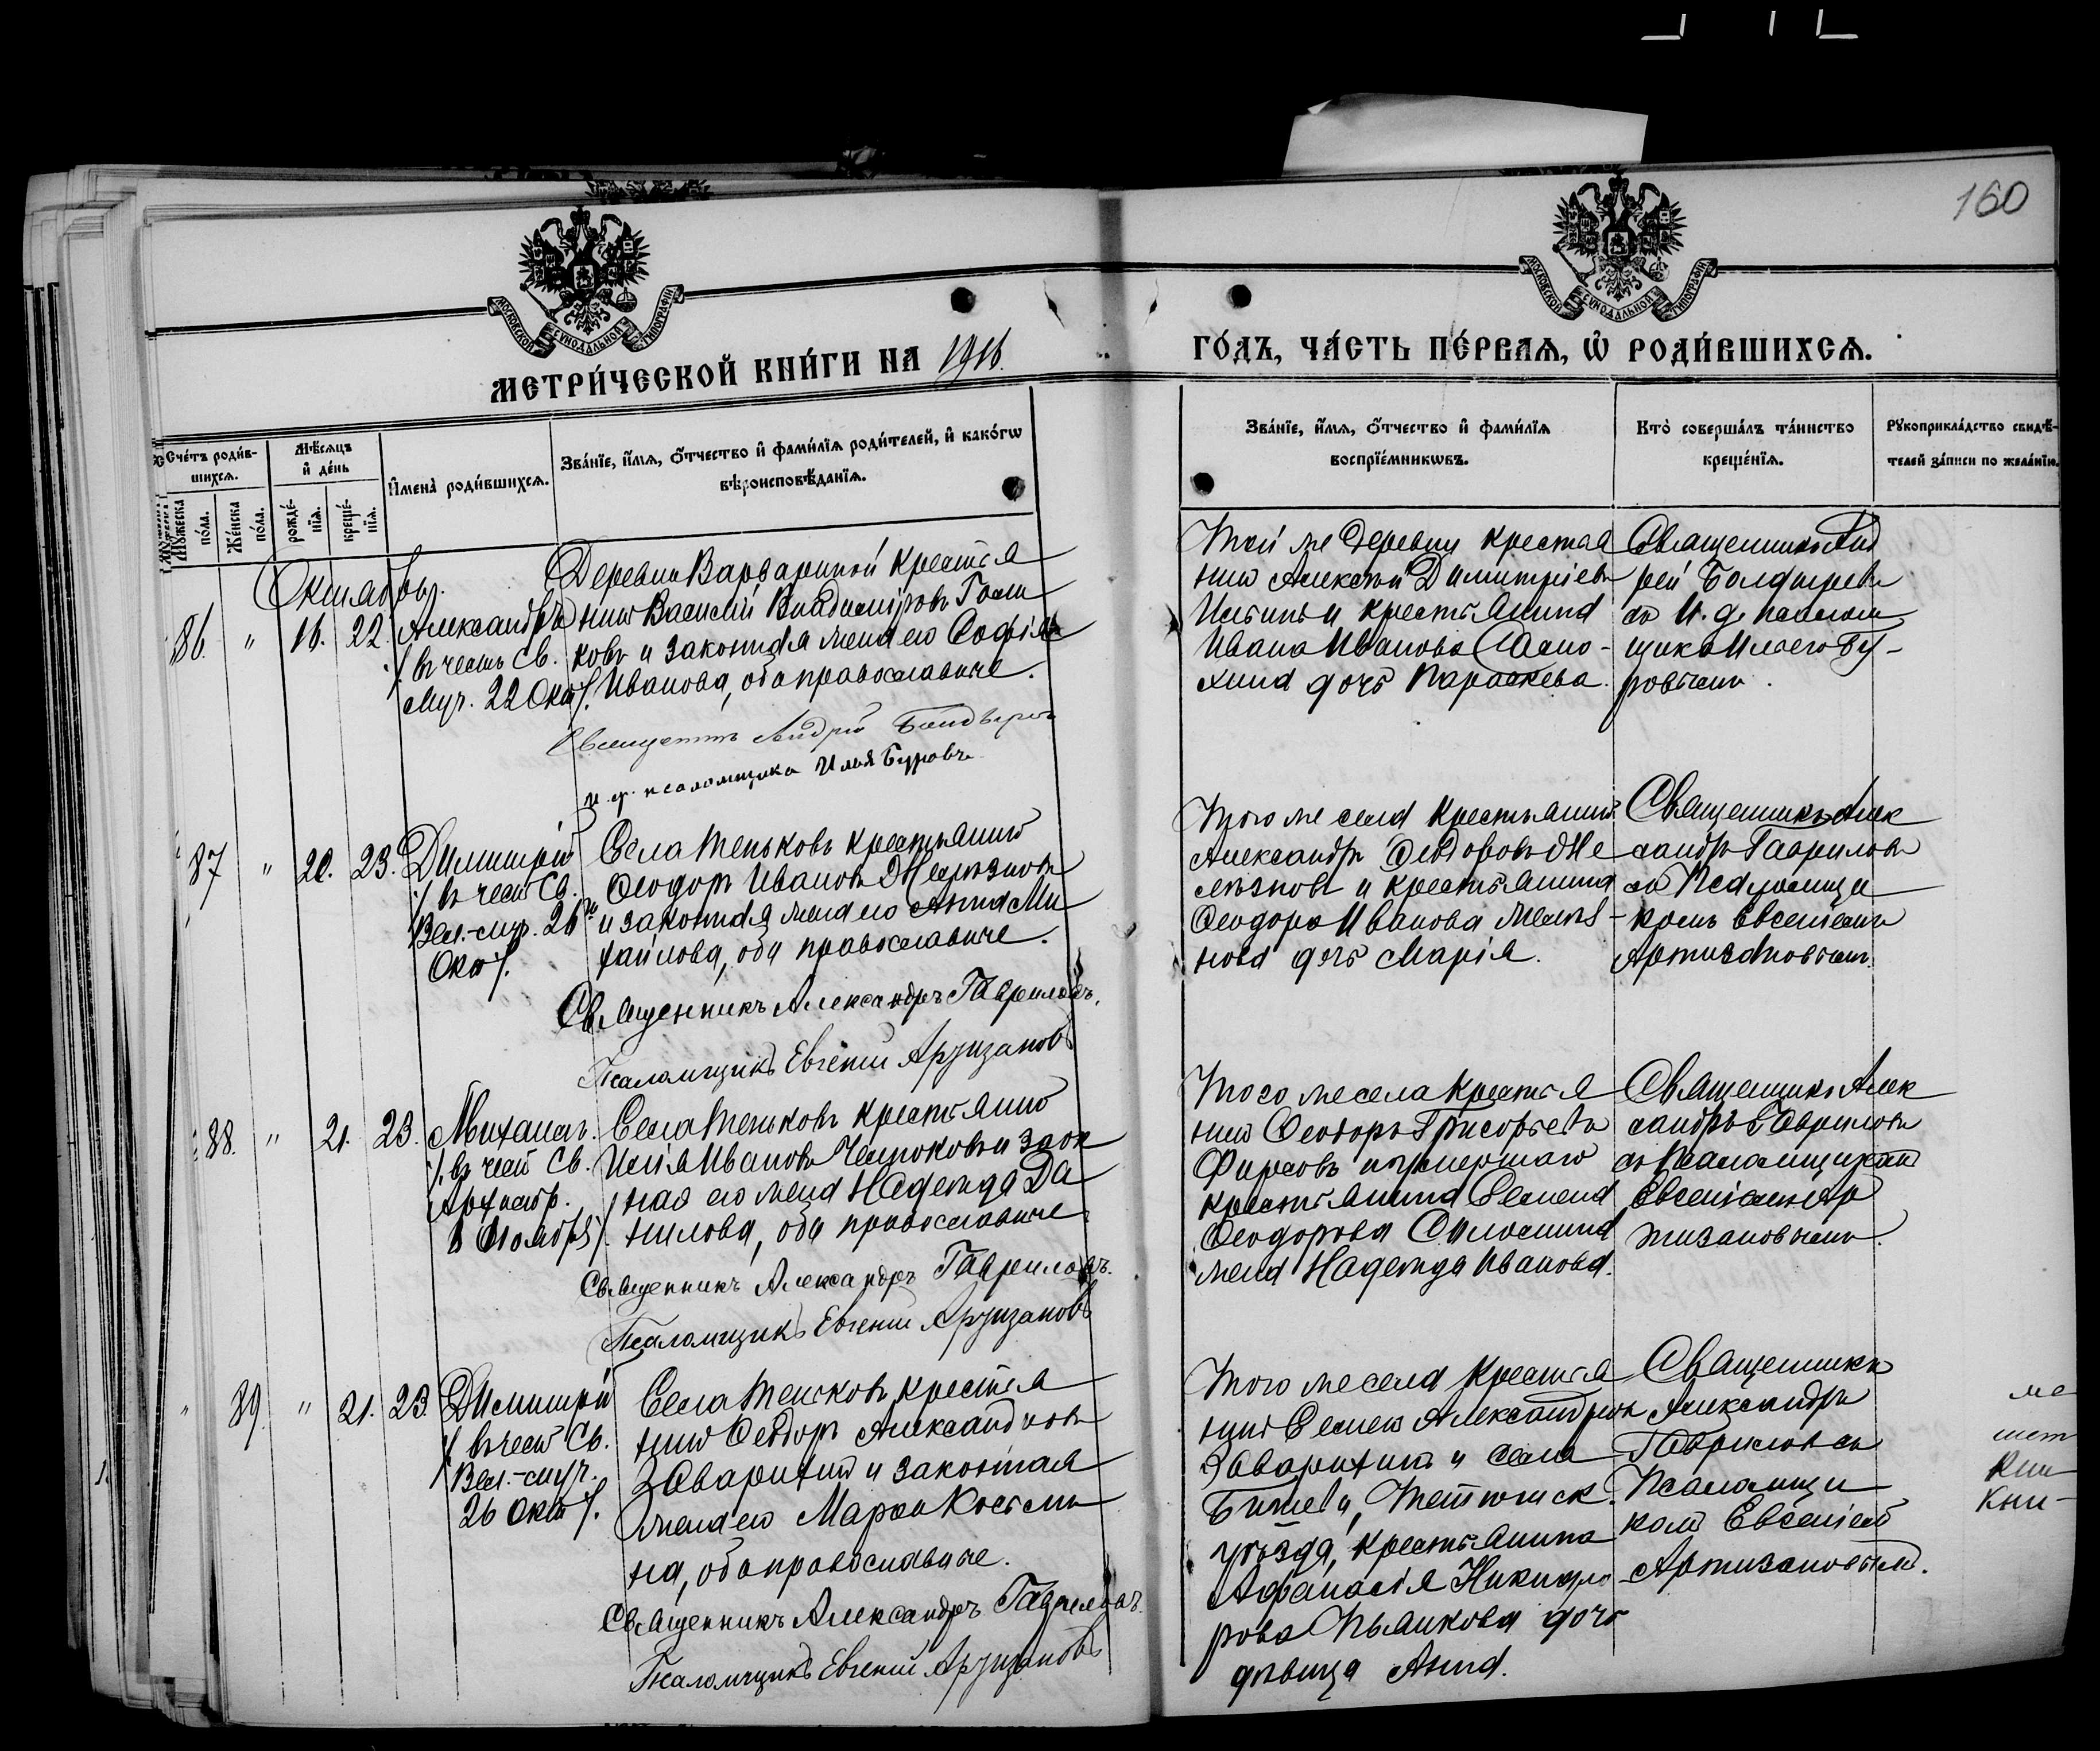 160
МОСКОВСКОЙ СѴНОДАЛЬНОЙ ТИПОГРАФІИ
МОСКОВСКОЙ СѴНОДАЛЬНОЙ ТИПОГРАФІИ
МЕТРИ́ЧЕСКОЙ КНИ́ГИ НА 1916
ГО́ДЪ, ЧА́СТЬ ПЕ́РВАѦ, Ѡ҆ РОДИ́ВШИХСѦ.
Сче́тъ роди́в-
шихсѧ.
Мꙋжеска
по́ла.
Же́нска
по́ла.
Мѣ́сѧцъ
и҆ де́нь
рожде́-
нїѧ.
креще́-
нїѧ.
И҆мена̀ роди́вшихсѧ.
Зва́нїе, и҆́мѧ, ѻ҆́тчество и҆ фами́лїѧ роди́телей, и҆ како́гѡ
вѣроисповѣ́данїѧ.
Зва́нїе, и҆́мѧ, ѻ҆́тчество и҆ фами́лїѧ
воспрїе́мникѡвъ.
Кто̀ соверша́лъ та́инство
креще́нїѧ.
Рꙋкоприкла́дство свидѣ́-
телей за́писи по жела́нїю.
Октябрь.
86. " 16. 22.
Александръ
/ въ честь Св.
Муч. 22 Окт /.
Деревни Варвариной крестья
нинъ Василій Владиміровъ
ковъ и законная жена его Софія
Иванова, оба православные.
Священникъ Андрей Болдыревъ
и. д. псаломщика Илья Буровъ
Той же деревни крестья
нинъ Алексѣй Димитріевъ
Ильинъ и крестьянина
Ивана Иванова
хина дочь Параскева.
Священникъ Анд
рей Болдыревъ
съ И. д. псалом
щика Ильею Бу-
ровымъ.
87 " 20. 23.
Димитрій
/ въ честь Св.
Вел.-муч. 26
Окт /.
Села Теньковъ крестьянинъ
Ѳеодоръ Ивановъ Желѣзновъ
и законная жена его Анна Ми
хайлова, оба православные.
Священникъ Александръ Гавриловъ.
Псаломщикъ Евгеній Артизановъ
Того же села крестьянинъ
Александръ Ѳеодоровъ Же
лѣзновъ и крестьянина
Ѳеодора Иванова Желѣз-
нова дочь Марія.
Священникъ Алек
сандръ Гавриловъ
съ Псаломщи
комъ Евгеніемъ
Артизановымъ.
88. " 21. 23.
Михаилъ.
/ въ честь Св.
Архистр.
8 Ноября /.
Села Теньковъ крестьянинъ
Илія Ивановъ и закон
ная его жена Надежда Да
нилова, оба православные.
Священникъ Александръ Гавриловъ.
Псаломщикъ Евгеній Артизановъ
Того же села крестья
нинъ Ѳеодоръ Григорьевъ
Фирсовъ и умершаго
крестьянина Семена
Ѳеодорова
жена Надежда Иванова.
Священникъ Алек
сандръ Гавриловъ
съ Псаломщикомъ
Евгеніемъ Ар
тизановымъ.
" 89. " 21. 23.
Димитрій
/ въ честь Св.
Вел.-муч.
26 Окт /.
Села Теньковъ крестья
нинъ Ѳеодоръ Александровъ
и законная
жена его Марѳа Косьми
на, оба православные.
Священникъ Александръ Гавриловъ.
Псаломщикъ Евгеній Артизановъ
Того же села крестья
нинъ Семенъ Александровъ
и села
Тетюшск.
уѣзда, крестьянина
Афанасія Никифо
рова Пьянкова дочь
дѣвица Анна.
Священникъ
Александръ
Гавриловъ съ
Псаломщи
комъ Евгеніемъ
Артизановымъ.